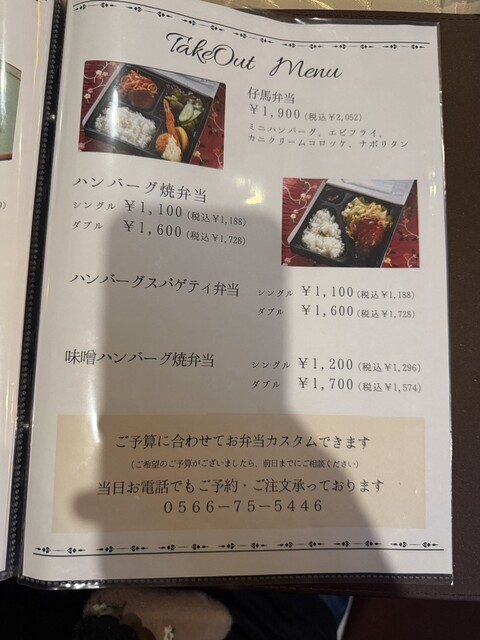 TakeOut Menu
仔馬弁当
￥1,900(税込￥2,052)
ミニハンバーグ、エビフライ、
カニクリームコロッケ、ナポリタン
ハンバーグ焼弁当
シングル ￥1,100(税込￥1,188)
ダブル ￥1,600(税込￥1,728)
ハンバーグスパゲティ弁当 シングル ￥1,100(税込￥1,188)
ダブル ￥1,600(税込￥1,728)
味噌ハンバーグ焼弁当 シングル ￥1,200(税込￥1,296)
ダブル ￥1,700(税込￥1,574)
ご予算に合わせてお弁当カスタムできます
(ご希望のご予算がございましたら、前日までにご相談ください)
当日お電話でもご予約・ご注文承っております
0566-75-5446